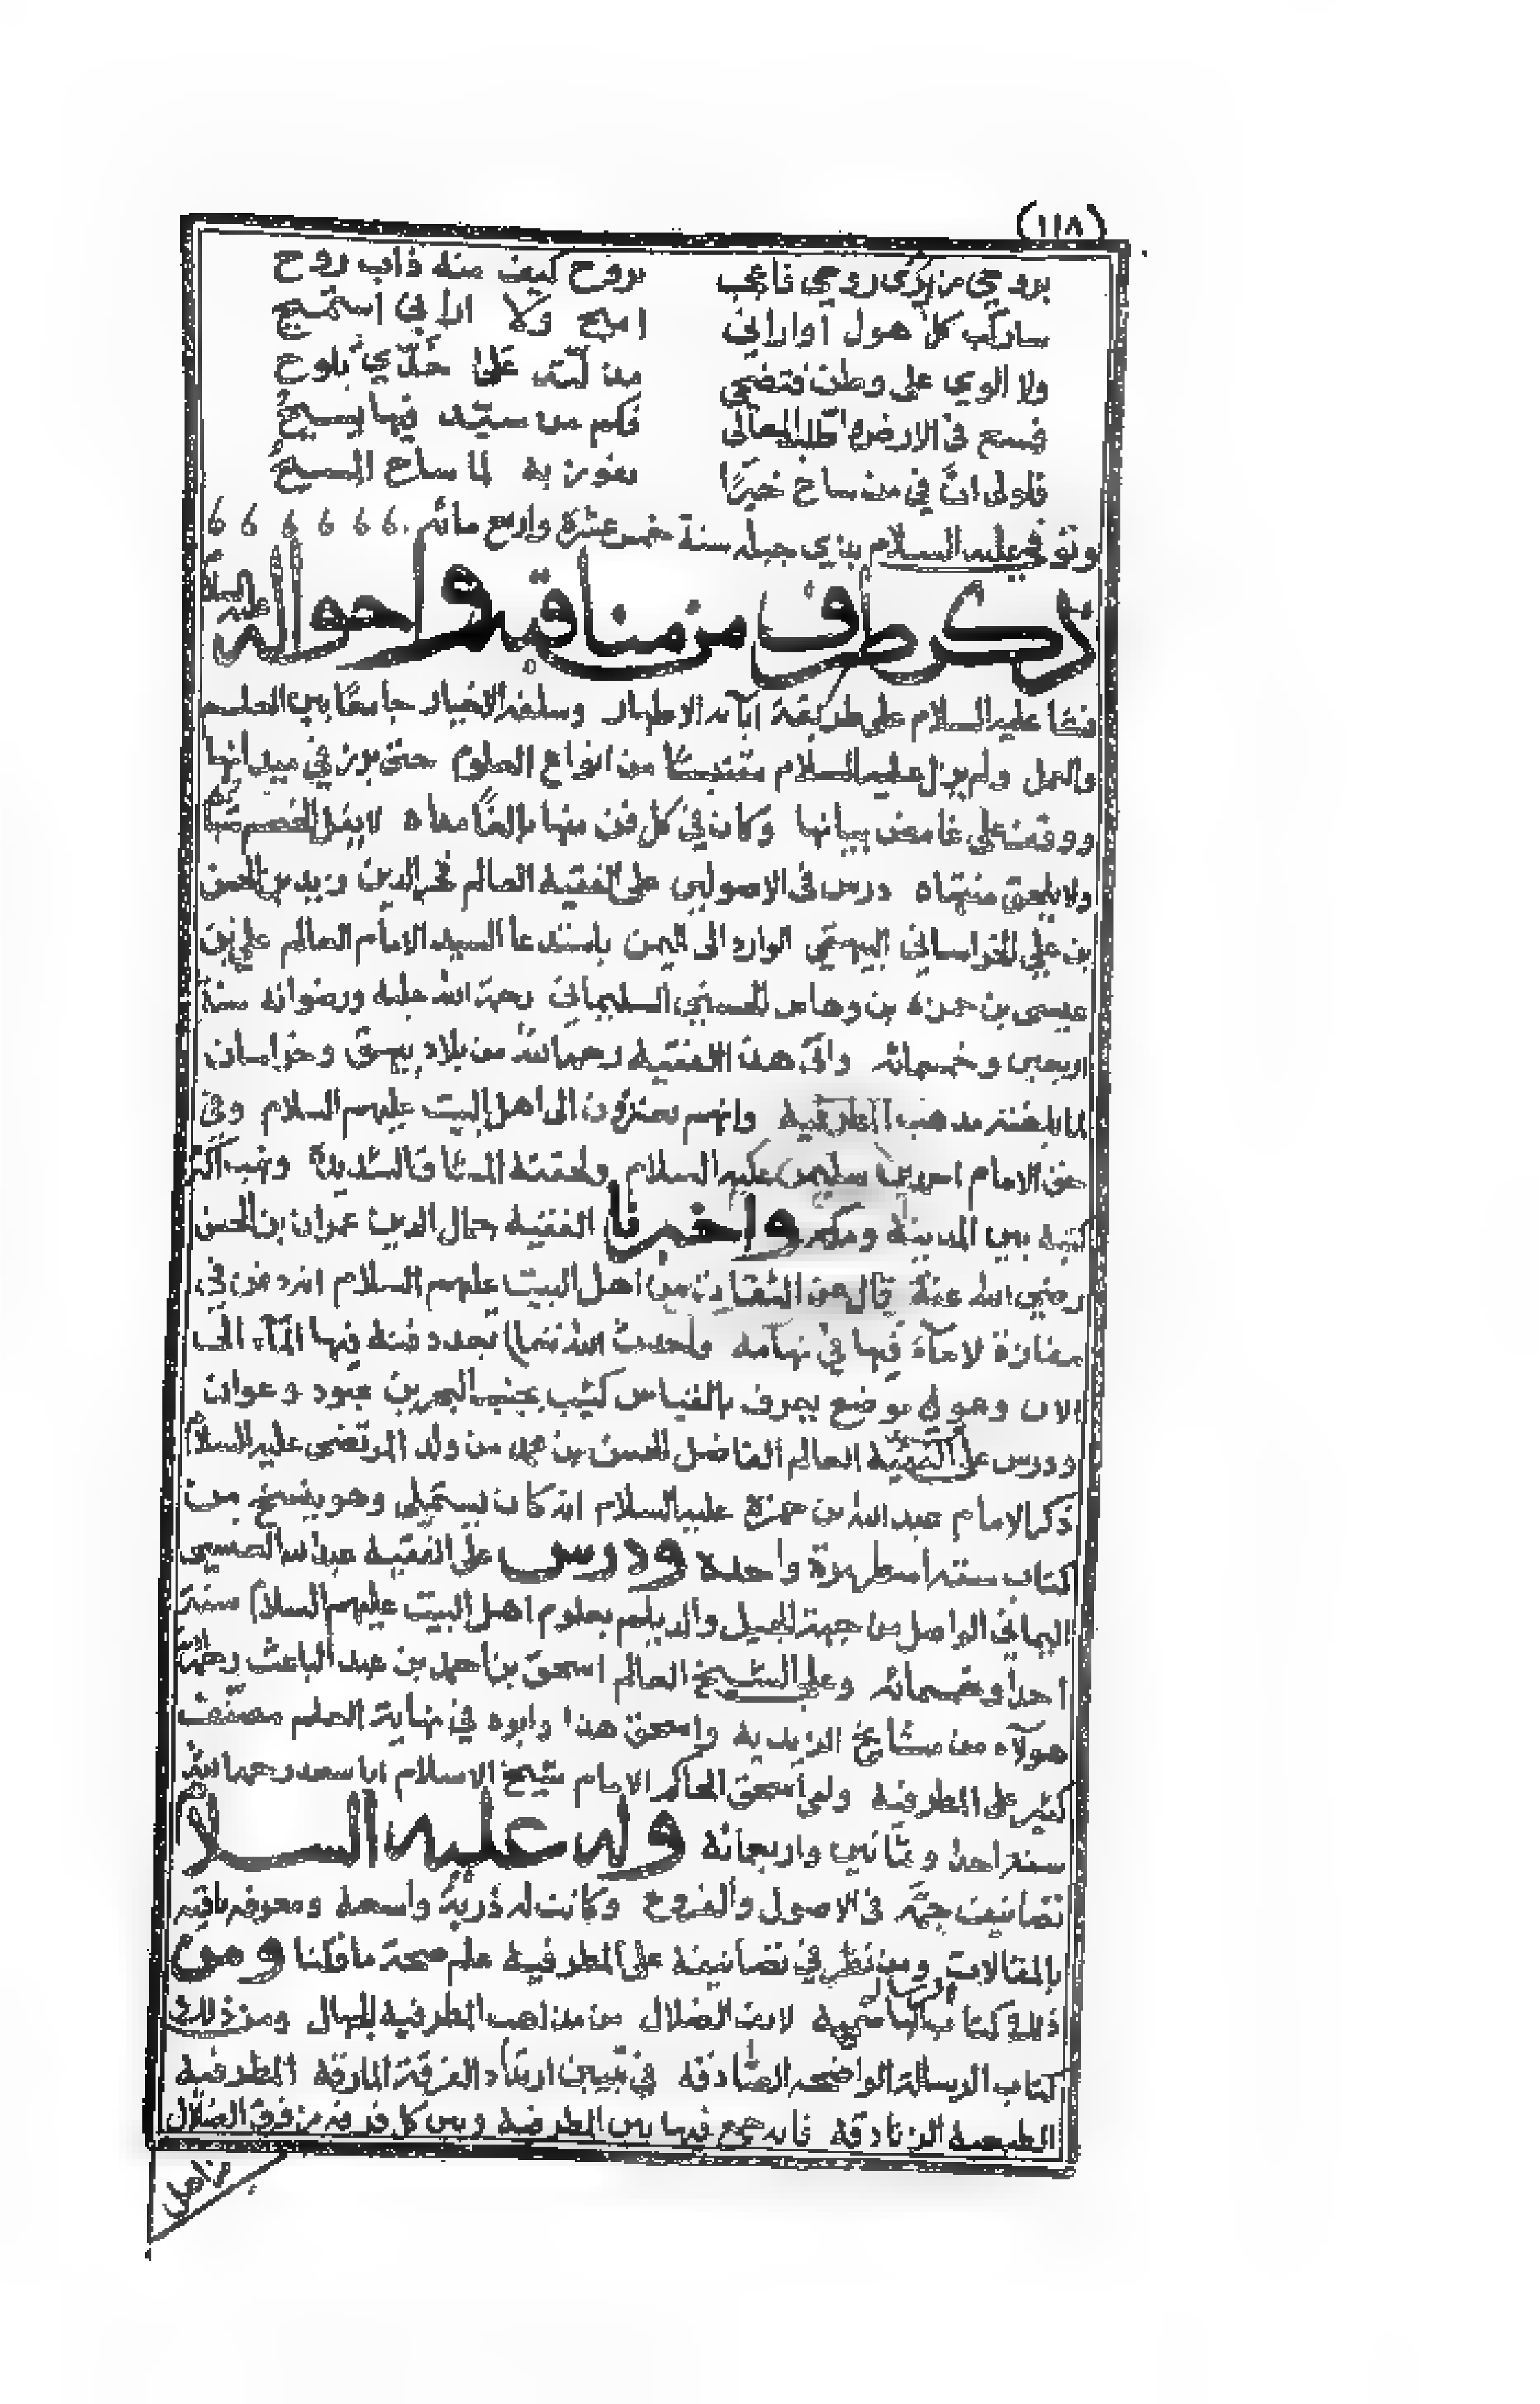 (١١٨)
بروحي من كرى روحي فاعجب بروح كيف منه ذاب روح
ساركب كل هول او اراني ولا اراني استميح
ولا الوي على وطن على خدي يلوح
فسح في الارض واطلب المعالي فكم من سيد فيها يسيح
فاولى ان في من ساح خيرا يفوز به لما ساح المسيح
وتوفي عليه السلام بذي جبله سنة خمس عشرة واربع مائه
ذكر طرف من مناقبه واحواله عليه السلام
نشا عليه السلام على طريقة آبائه الاطهار وسلفه الاخيار جامعا بين العلم
والعمل ولم يزل عليه السلام مقتبسا من انواع العلوم حتى برز في ميدانها
ووقف على غامض بيانها وكان في كل فن منها بالغا مداه لا يصل الخصم
ولا يلحق منتهاه درس في الاصولين على الفقيه العالم فخر الدين زيد بن الحسن
بن علي الخراساني البيهقي الوارد الى اليمن باستدعا السيد الامام العالم علي بن
عيسى بن حمزة بن وهاس الحسني السليماني رحمة الله عليه ورضوانه سنة
اربعين وخمسمائه واتى هذا الفقيه رحمه الله من بلاد بيهق وخراسان
لما بلغته مذهب المطرفية وانهم يعتزون الى اهل البيت عليهم السلام وفي
حق الامام احمد بن سليمن عليه السلام ولحقته المشاق الشديدة ونهب اكثر
كتبه بين المدينة ومكه واخبرنا الفقيه جمال الدين عمران بن الحسن
رضي الله عنه قال عن الثقات من اهل البيت عليهم السلام انه دفن في
مفازة لا مآء فيها في تهامه واحدث الله تعا) بعد دفنه فيها المآء الى
الان وهو في موضع يعرف بالقياس كثيب بجنب البحر بين عبود وعوان
ودرس على الفقيه العالم الفاضل الحسن بن محمد من ولد المرتضى عليه السلام
ذكر الامام عبد الله بن حمزة عليه السلام انه كان يستملي وهو ينسخ من
كتاب ستة اسطر مرة واحده ودرس على الفقيه عبد الله الحسيني
اليماني الواصل من جهة الجيل والديلم بعلوم اهل البيت عليهم السلام سنة
احدا وخمسمائه وعلى الشيخ العالم اسحق بن احمد بن عبد الباعث رحمه الله
هولآء من مشايخ الزيديه واسحق هذا وابوه في نهاية العلم مصنف
كثير على المطرفية ولقي اسحق الحاكم الامام شيخ الاسلام ابا سعد رحمه الله
سنة احدا وثمانين واربعمائه وله عليه السلام
تصانيف جمة في الاصول والفروع وكانت له ذريه واسعه ومعرفه باقيه
بالمقالات ومن نظر في تصانيفه على المطرفية علم صحة ما قلنا ومن
ذلك كتاب الهاشمية لانف الضلال من مذاهب المطرفية الجهال ومن ذلك
كتاب الرسالة الواضحه الصادقه في تبيين ارتداد الفرقة المارقة المطرفية
الطبعية الزنادقة فانه جمع فيها بين المطرفية وبين كل فرقه من فرق الضلال
من اهل